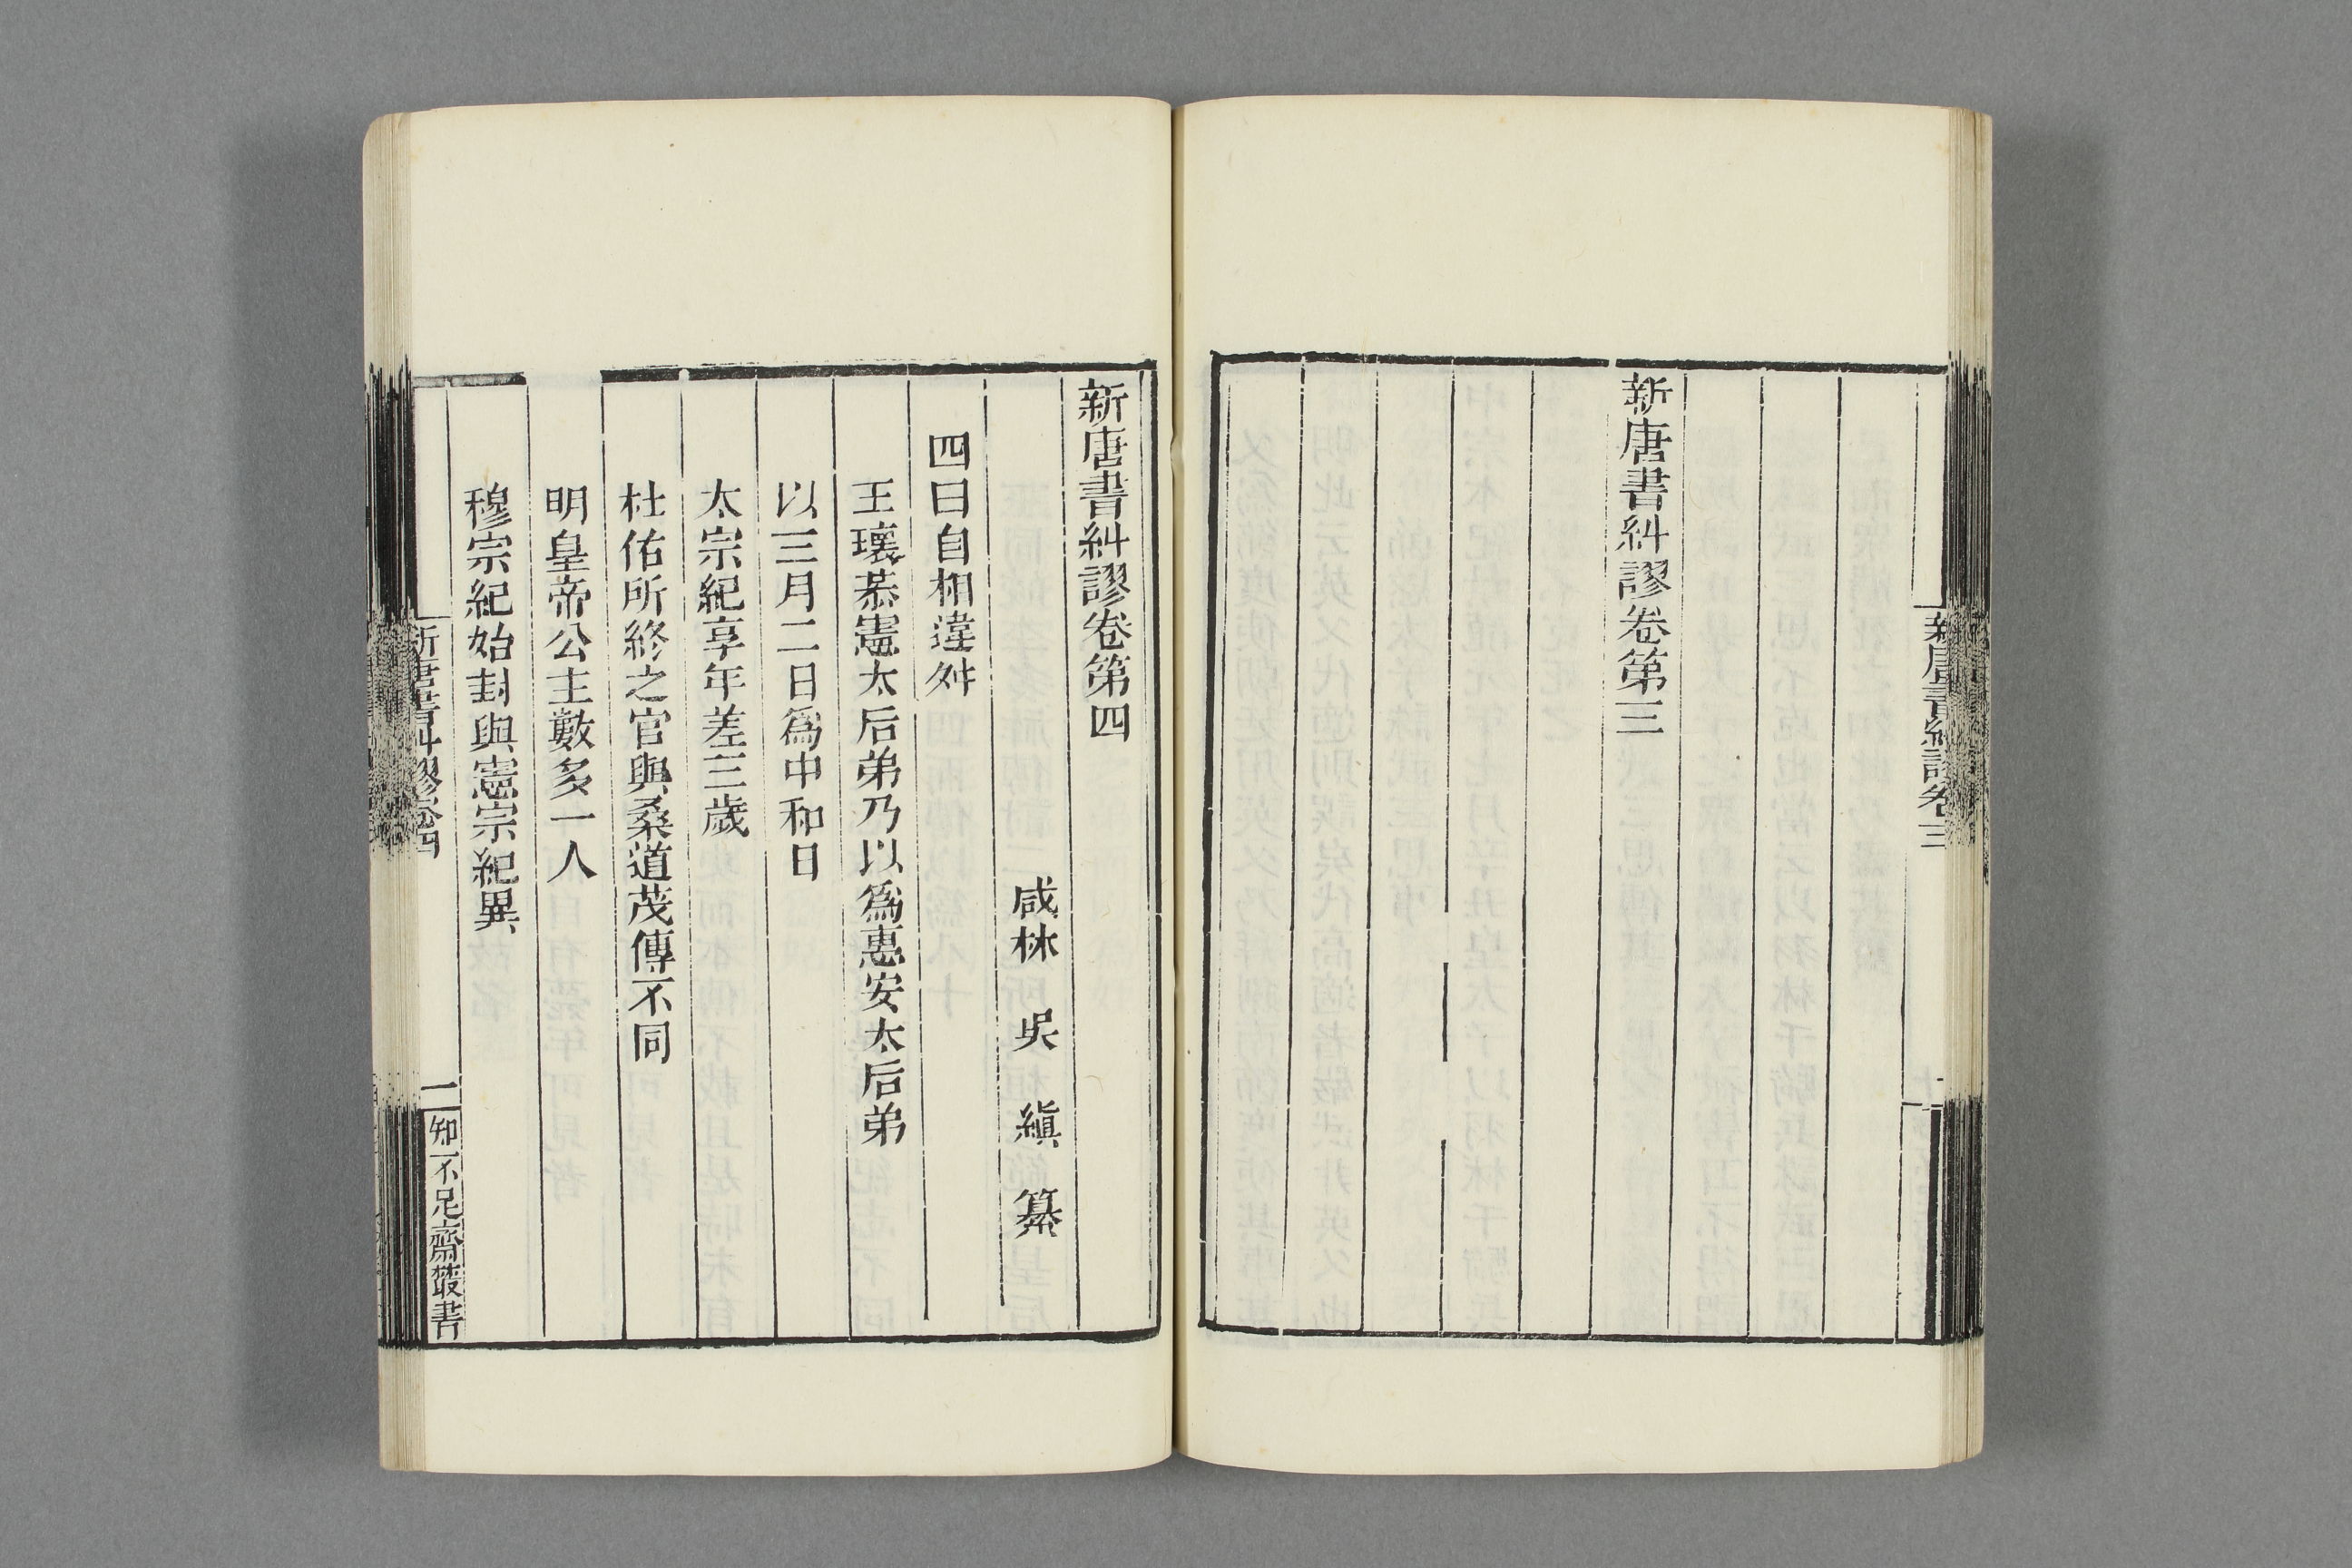 新唐書糾謬卷第三
新唐書糾謬卷三
新唐書糾謬卷第四
咸林 吳 縝 纂
四曰自相違舛
王瓌恭憲太后弟乃以爲惠安太后弟
以三月二日爲中和日
太宗紀享年差三歲
杜佑所終之官與桑道茂傳不同
明皇帝公主數多一人
穆宗紀始封與憲宗紀異
新唐書糾謬卷四
一
知不足齋叢書